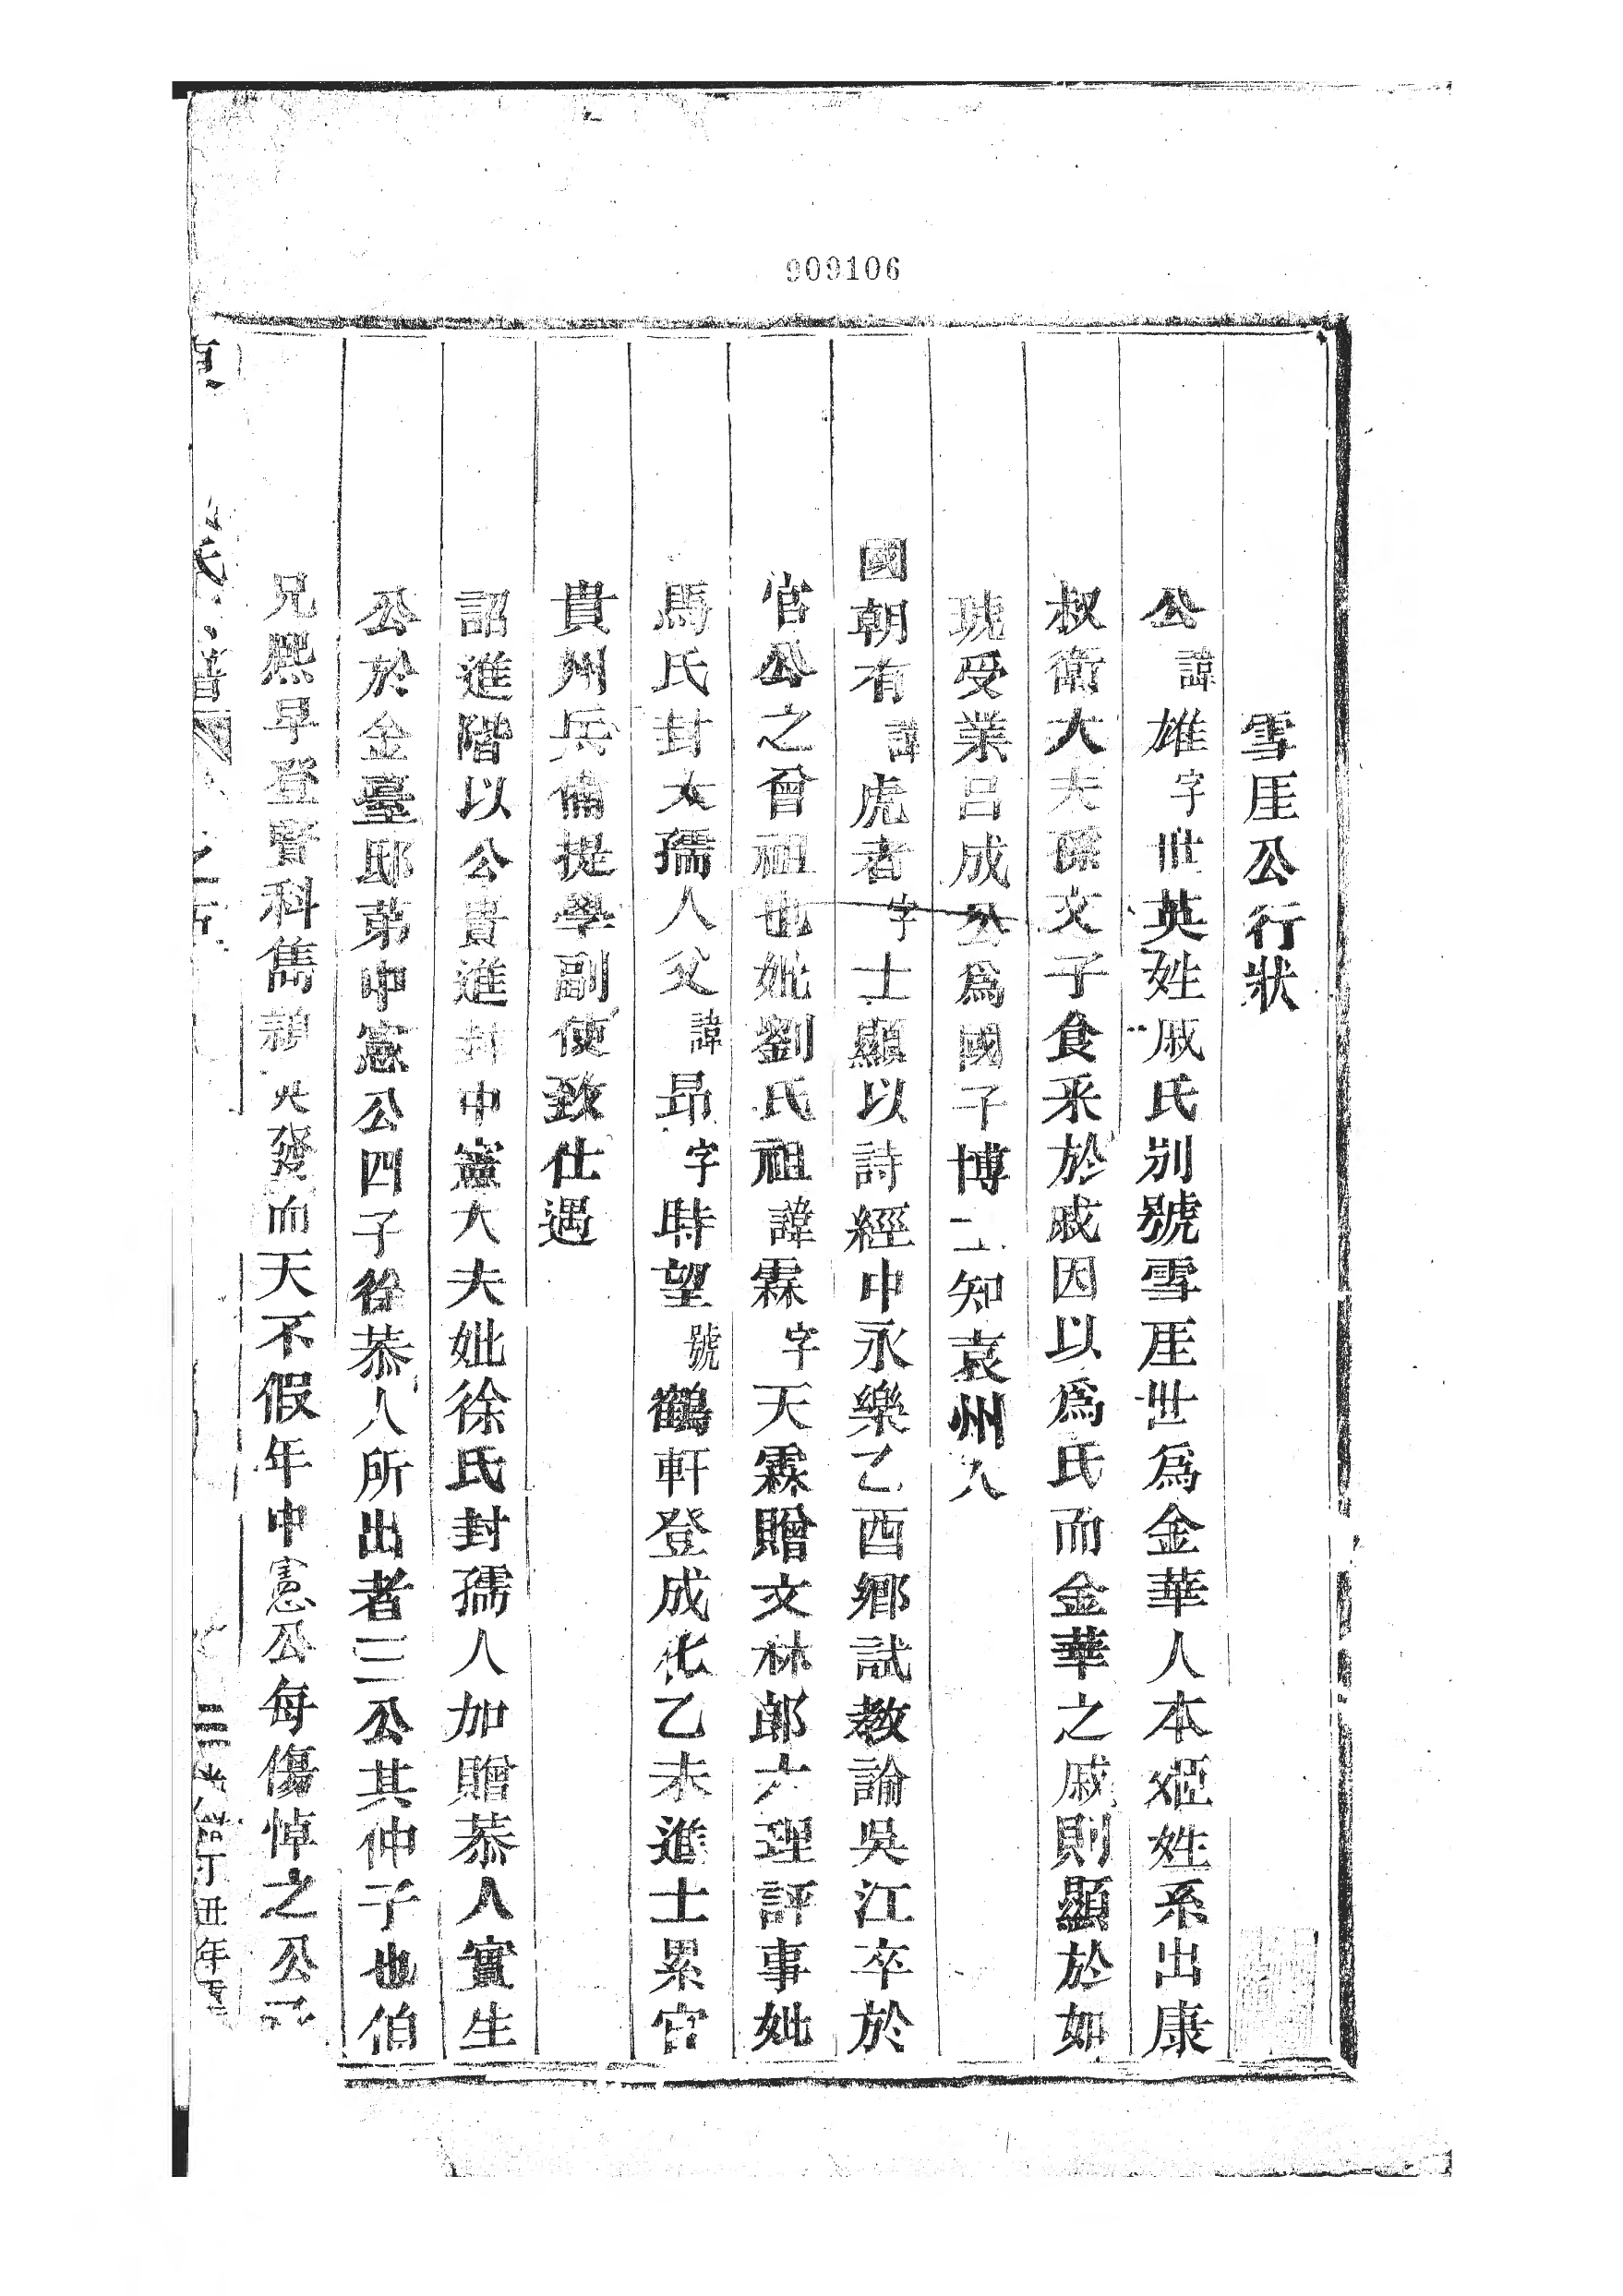 909106
雪厓公行狀
公諱雄字世英姓戚氏别號雪厓世爲金華人本姬姓系出康
叔衛大夫孫文子食釆於戚因以爲氏而金華之戚則顯於如
琥受業吕成公爲國子博士知袁州入
國朝有諱虎者字士顯以詩經中永樂乙酉鄉試教諭吳江卒於
官公之曾祖也妣劉氏祖諱霖字天霖贈文林郎大理評事妣
馬氏封太孺人父諱昂字時望號鶴軒登成化乙未進士累官
貴州兵備提學副使致仕遇
詔進階以公貴進封中憲大夫妣徐氏封孺人加贈恭人實生
公於金臺邸第中憲公四子徐恭人所出者三公其仲子也伯
兄熙早登賢科雋穎 發而天不假年中憲公每傷悼之公
氏譜 丁丑年